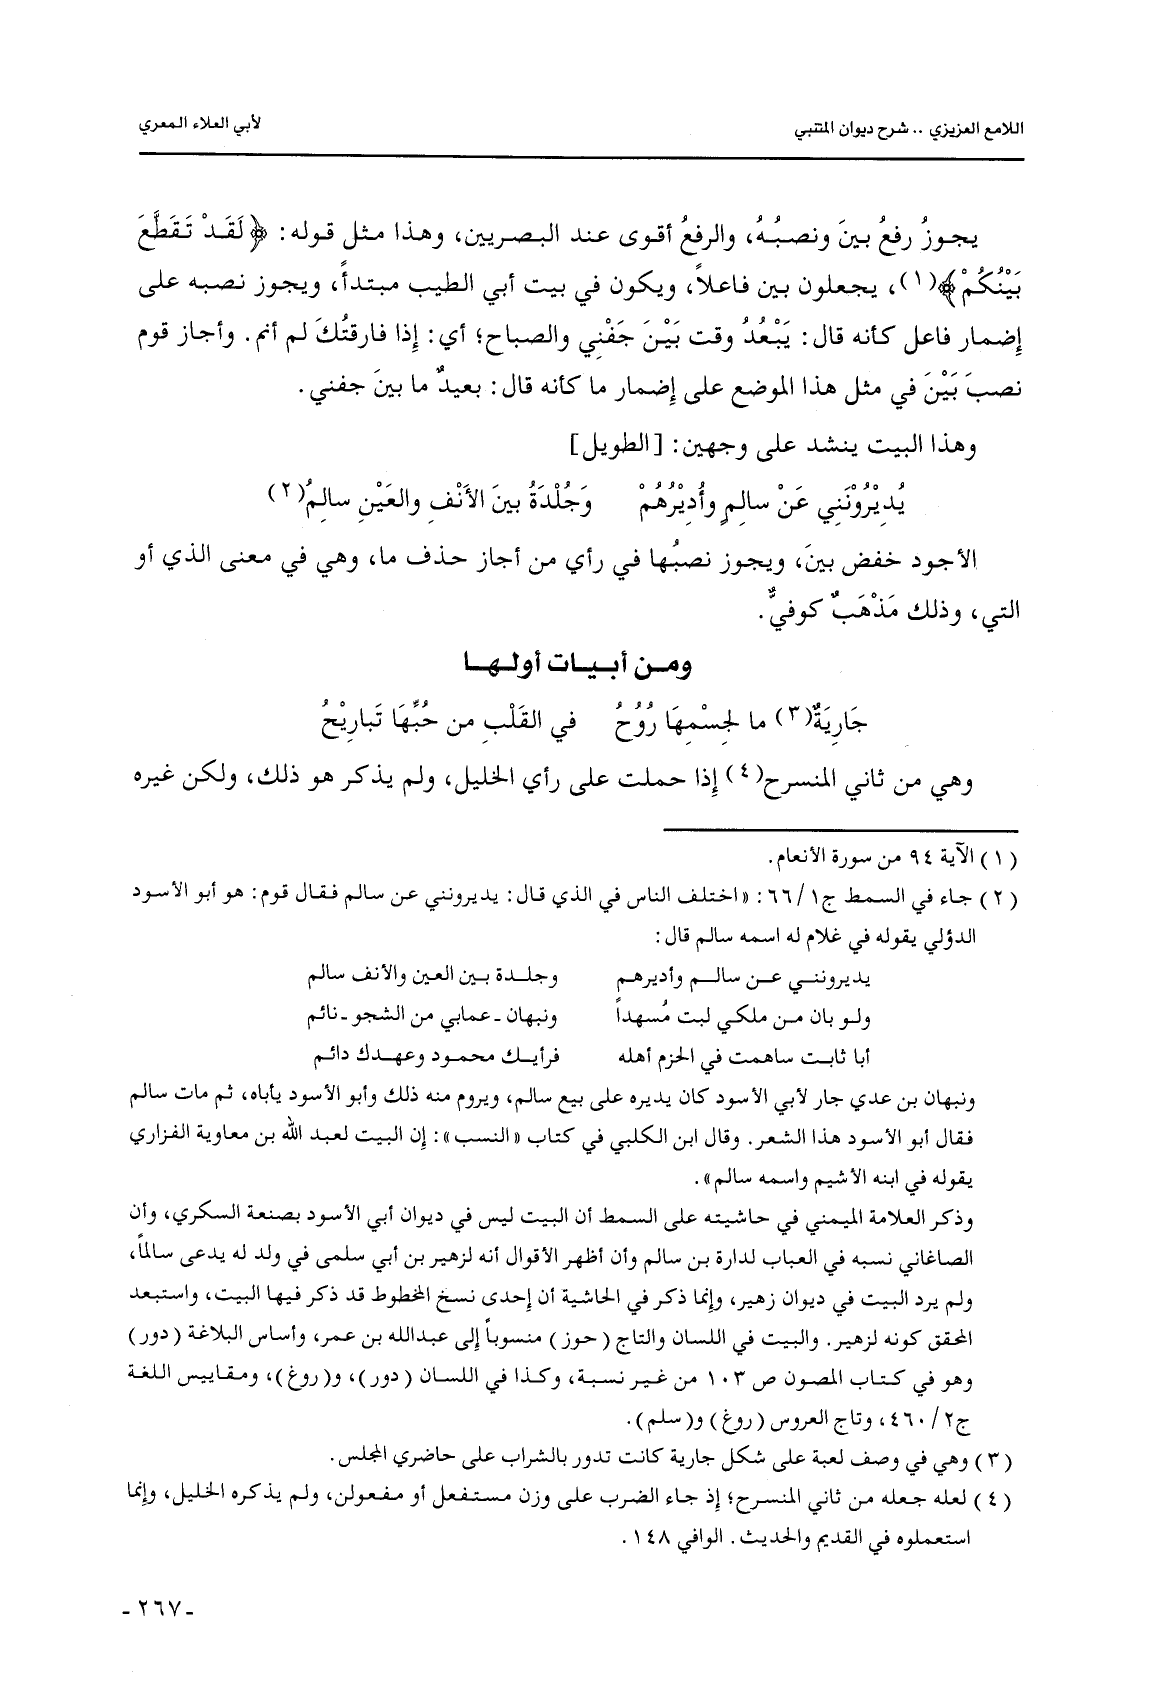 اللامع العزيزي .. شرح ديوان المتنبي
لأبي العلاء المعري
يجوزُ رفعُ بينَ ونصبُهُ، والرفعُ أقوى عند البصريين، وهذا مثل قوله: ﴿لَقَدْ تَقَطَّعَ
بَيْنُكُمْ﴾(١)، يجعلون بين فاعلاً، ويكون في بيت أبي الطيب مبتدأً، ويجوز نصبه على
إضمار فاعل كأنه قال: يَبْعُدُ وقت بَيْنَ جَفْنِي والصباح؛ أي: إذا فارقتُكَ لم أنم. وأجاز قوم
نصبَ بَيْنَ في مثل هذا الموضع على إضمار ما كأنه قال: بعيدٌ ما بينَ جفني.
وهذا البيت ينشد على وجهين: [الطويل]
يُدِيْرُوْنَنِي عَنْ سالِمٍ وأُدِيْرُهُمْ وَجُلْدَةُ بينَ الأَنْفِ والعَيْنِ سالِمُ(٢)
الأجود خفض بينَ، ويجوز نصبُها في رأي من أجاز حذف ما، وهي في معنى الذي أو
التي، وذلك مَذْهَبٌ كوفيٌّ.
ومن أبيات أولها
جَارِيَةٌ(٣) ما لجِسْمِهَا رُوُحُ في القَلْبِ من حُبِّهَا تَبارِيْحُ
وهي من ثاني المنسرح(٤) إذا حملت على رأي الخليل، ولم يذكر هو ذلك، ولكن غيره
(١) الآية ٩٤ من سورة الأنعام.
(٢) جاء في السمط ج١/٦٦: «اختلف الناس في الذي قال: يديرونني عن سالم فقال قوم: هو أبو الأسود
الدؤلي يقوله في غلام له اسمه سالم قال:
يديرونني عن سالم وأديرهم وجلدة بين العين والأنف سالم
ولو بان من ملكي لبت مُسهداً ونبهان ـ عمابي من الشجو ـ نائم
أبا ثابت ساهمت في الحزم أهله فرأيك محمود وعهدك دائم
ونبهان بن عدي جار لأبي الأسود كان يديره على بيع سالم، ويروم منه ذلك وأبو الأسود يأباه، ثم مات سالم
فقال أبو الأسود هذا الشعر. وقال ابن الكلبي في كتاب «النسب»: إن البيت لعبد الله بن معاوية الفزاري
يقوله في ابنه الأشيم واسمه سالم».
وذكر العلامة الميمني في حاشيته على السمط أن البيت ليس في ديوان أبي الأسود بصنعة السكري، وأن
الصاغاني نسبه في العباب لدارة بن سالم وأن أظهر الأقوال أنه لزهير بن أبي سلمى في ولد له يدعى سالماً،
ولم يرد البيت في ديوان زهير، وإنما ذكر في الحاشية أن إحدى نسخ المخطوط قد ذكر فيها البيت، واستبعد
المحقق كونه لزهير. والبيت في اللسان والتاج (حوز) منسوباً إلى عبدالله بن عمر، وأساس البلاغة (دور)
وهو في كتاب المصون ص ١٠٣ من غير نسبة، وكذا في اللسان (دور)، و(روغ)، ومقاييس اللغة
ج٢/٤٦٠، وتاج العروس (روغ) و(سلم).
(٣) وهي في وصف لعبة على شكل جارية كانت تدور بالشراب على حاضري المجلس.
(٤) لعله جعله من ثاني المنسرح؛ إذ جاء الضرب على وزن مستفعل أو مفعولن، ولم يذكره الخليل، وإنما
استعملوه في القديم والحديث. الوافي ١٤٨.
ـ ٢٦٧ ـ